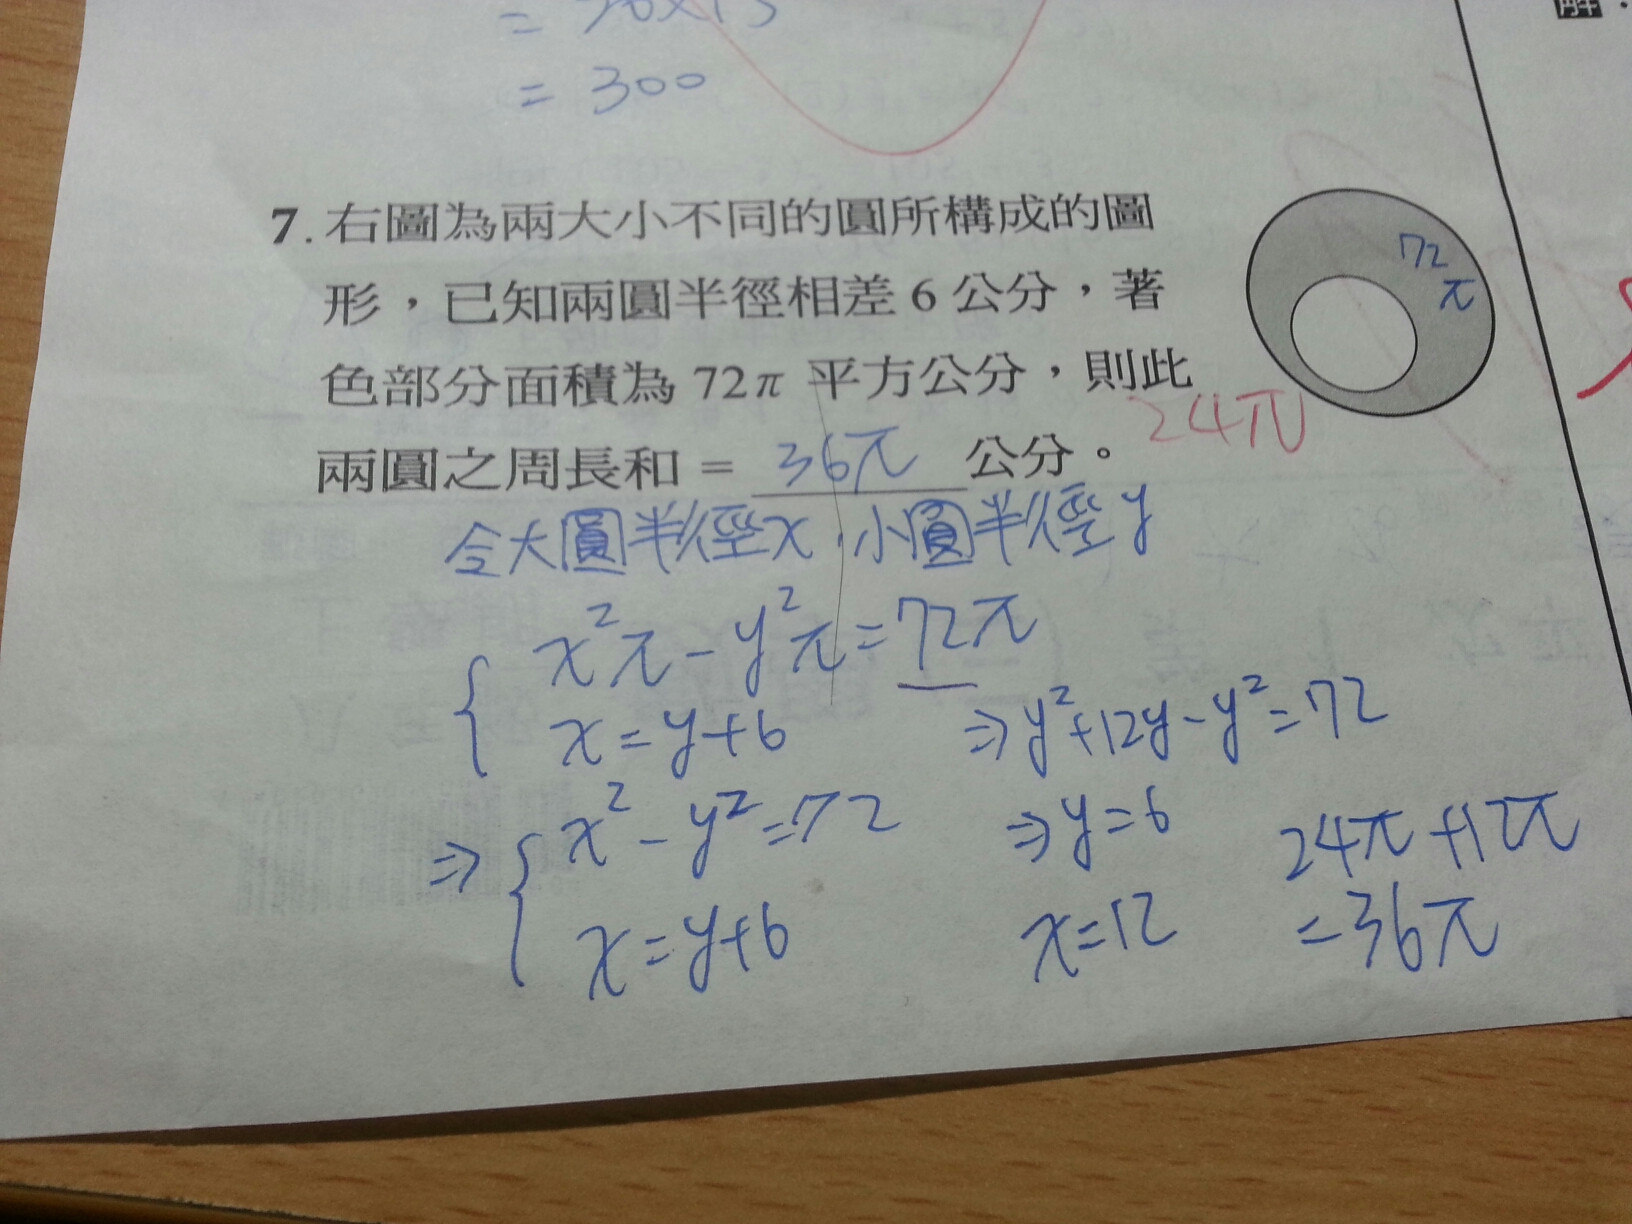 = 300
解：
7. 右圖為兩大小不同的圓所構成的圖
形，已知兩圓半徑相差 6 公分，著
色部分面積為 72π 平方公分，則此
兩圓之周長和 = 36π 公分。
72
π
24π
令大圓半徑x，小圓半徑y
x²π-y²π=72π
x=y+6
⇒ x²-y²=72
x=y+6
⇒y²+12y-y²=72
⇒y=6
x=12
24π+12π
=36π